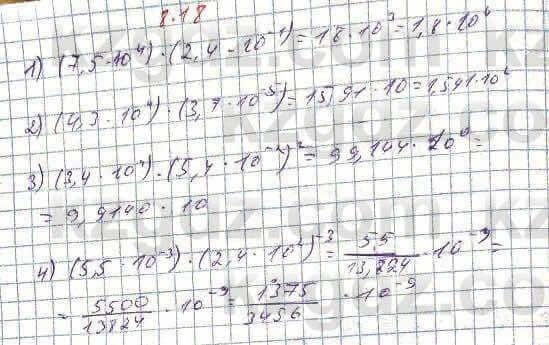 8.18
1) (7,5·10⁴)·(2,4·10⁻¹)=18·10³=1,8·10⁴
2) (4,3·10⁴)·(3,7·10⁻⁵)=15,91·10=1,591·10²
3) (3,4·10⁴)·(5,4·10⁻²)²=99,144·10⁰=
=9,9140·10
4) (5,5·10⁻³)·(2,4·10²)⁻³=5,5/13,824·10⁻⁹=
=5500/13824·10⁻⁹=1375/3456·10⁻⁹